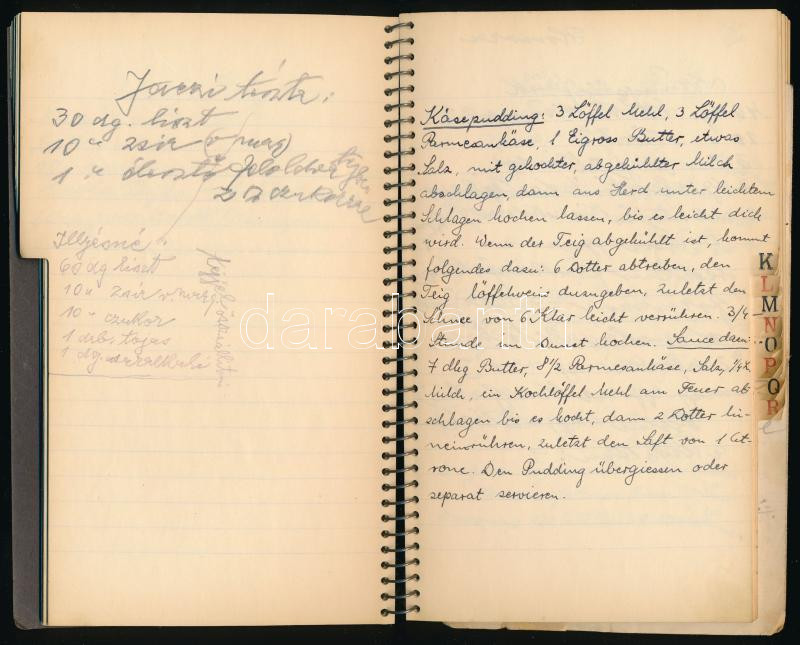 Jaczi tészta:
30 dg. liszt
10 " zsír (v. marg)
1 " élesztő feloldva
2 cukorral
Illyésné:
60 dg liszt
10 " zsír v. marg
10 " cukor
1 drb. tojás
1 dg. szalalkáli
Käsepudding: 3 Löffel Mehl, 3 Löffel
Parmesankäse, 1 Eigross Butter, etwas
Salz, mit gekochter, abgekühlter Milch
abschlagen, dann aus Herd unter leichtem
Schlagen kochen lassen, bis es leicht dick
wird. Wenn der Teig abgekühlt ist, kommt
folgendes dazu: 6 Dotter abtreiben, den
Teig löffelweis dazugeben, zuletzt den
Schnee von 6 Klar leicht verrühren. 3/4
Stunde im Dunst kochen. Sauce dazu:
7 dkg Butter, 8 1/2 Parmesankäse, Salz, 1/4 l.
Milch, ein Kochlöffel Mehl am Feuer ab
schlagen bis es kocht, dann 2 Dotter hi-
neinrühren, zuletzt den Saft von 1 Cit-
rone. Den Pudding übergiessen oder
separat servieren.
K
L
M
N
O
P
Q
R
darabanth